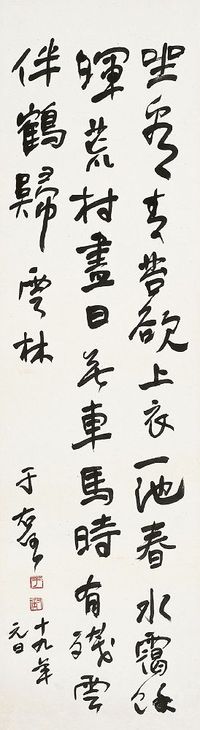 坐看青苔欲上衣一池春水靄餘
暉荒村盡日無車馬時有殘雲
伴鶴歸 雲林
于
十九年
元日